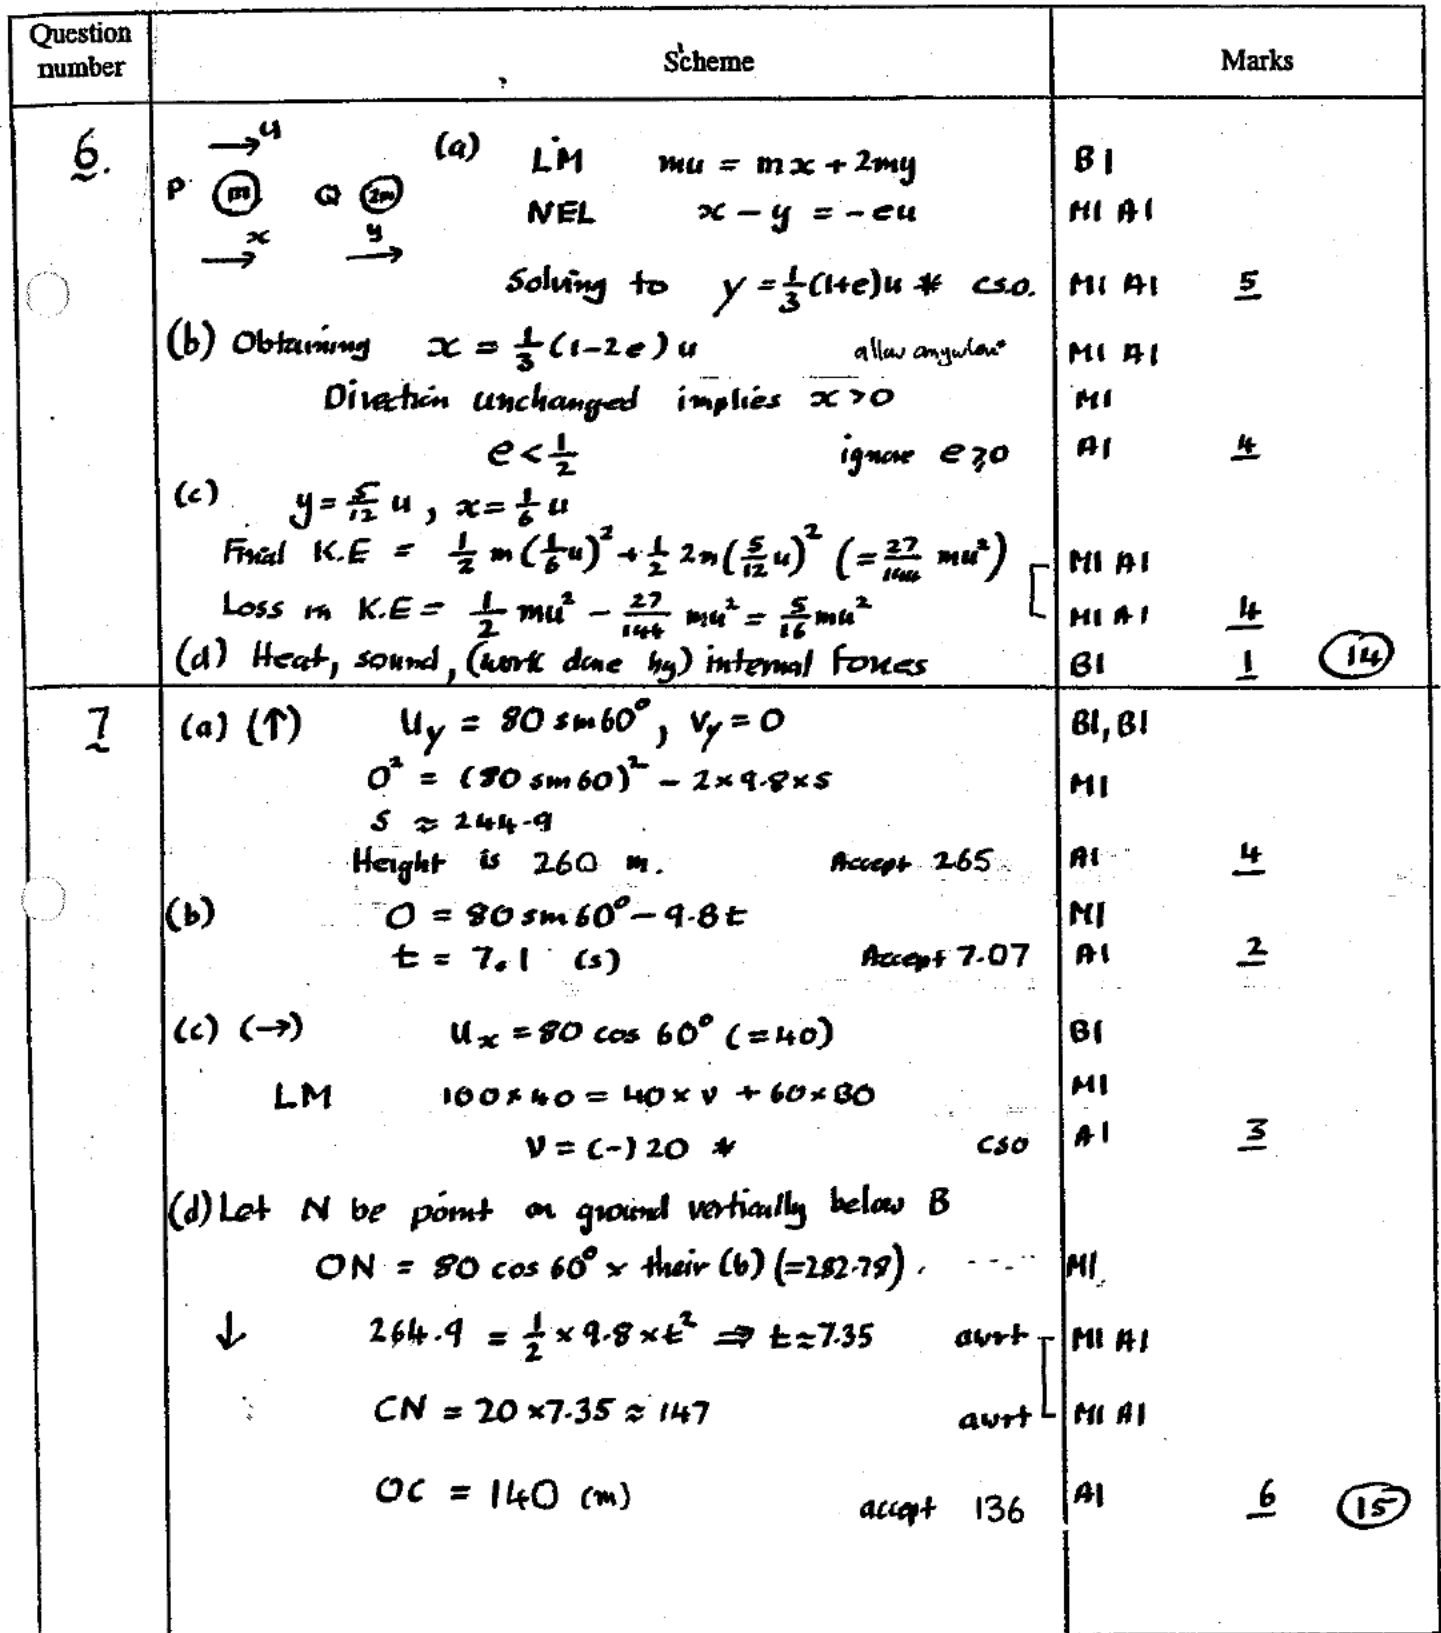 Question number Scheme Marks
6. →u (a) LM mu = mx + 2my B1
P (m) Q (2m) NEL x - y = -eu M1 A1
→x →y
Solving to y = 1/3(1+e)u * cso. M1 A1 5
(b) Obtaining x = 1/3(1-2e)u allow anywhere M1 A1
Direction unchanged implies x>0 M1
e < 1/2 ignore e≥0 A1 4
(c) y = 5/12 u, x = 1/6 u
Final K.E = 1/2 m(1/6 u)² + 1/2 2m(5/12 u)² (= 27/144 mu²) M1 A1
Loss in K.E = 1/2 mu² - 27/144 mu² = 5/16 mu² M1 A1 4
(d) Heat, sound, (work done by) internal forces B1 1 (14)
7 (a) (↑) u_y = 80 sin 60°, v_y = 0 B1, B1
0² = (80 sin 60)² - 2×9.8×s M1
s ≈ 244.9
Height is 260 m. Accept 265 A1 4
(b) 0 = 80 sin 60° - 9.8t M1
t = 7.1 (s) Accept 7.07 A1 2
(c) (→) u_x = 80 cos 60° (=40) B1
LM 100×40 = 40×v + 60×80 M1
v = (-) 20 * cso A1 3
(d) Let N be point on ground vertically below B
ON = 80 cos 60° × their (b) (=282.78) . ---- M1
↓ 264.9 = 1/2 × 9.8 × t² ⇒ t ≈ 7.35 awrt M1 A1
CN = 20 × 7.35 ≈ 147 awrt M1 A1
OC = 140 (m) accept 136 A1 6 (15)